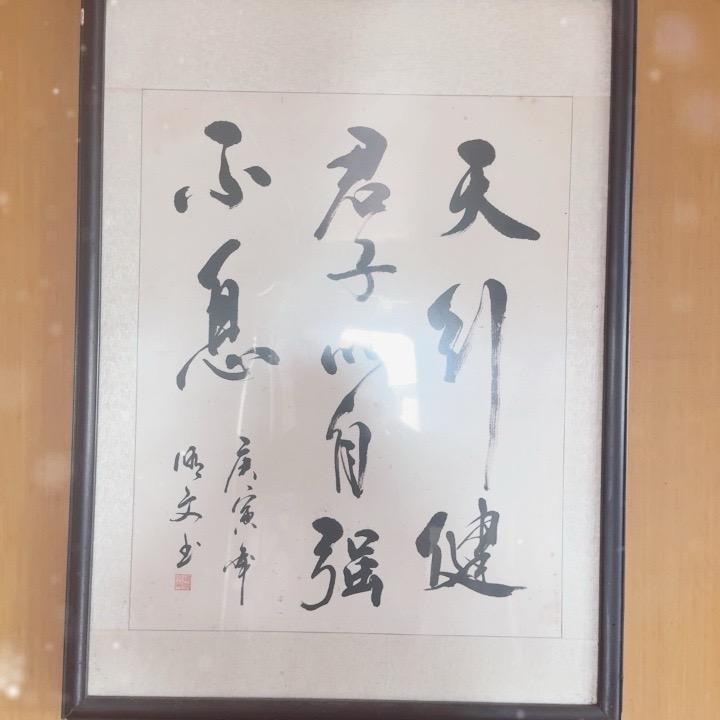 天行健
君子以自强
不息
庚寅年
文书